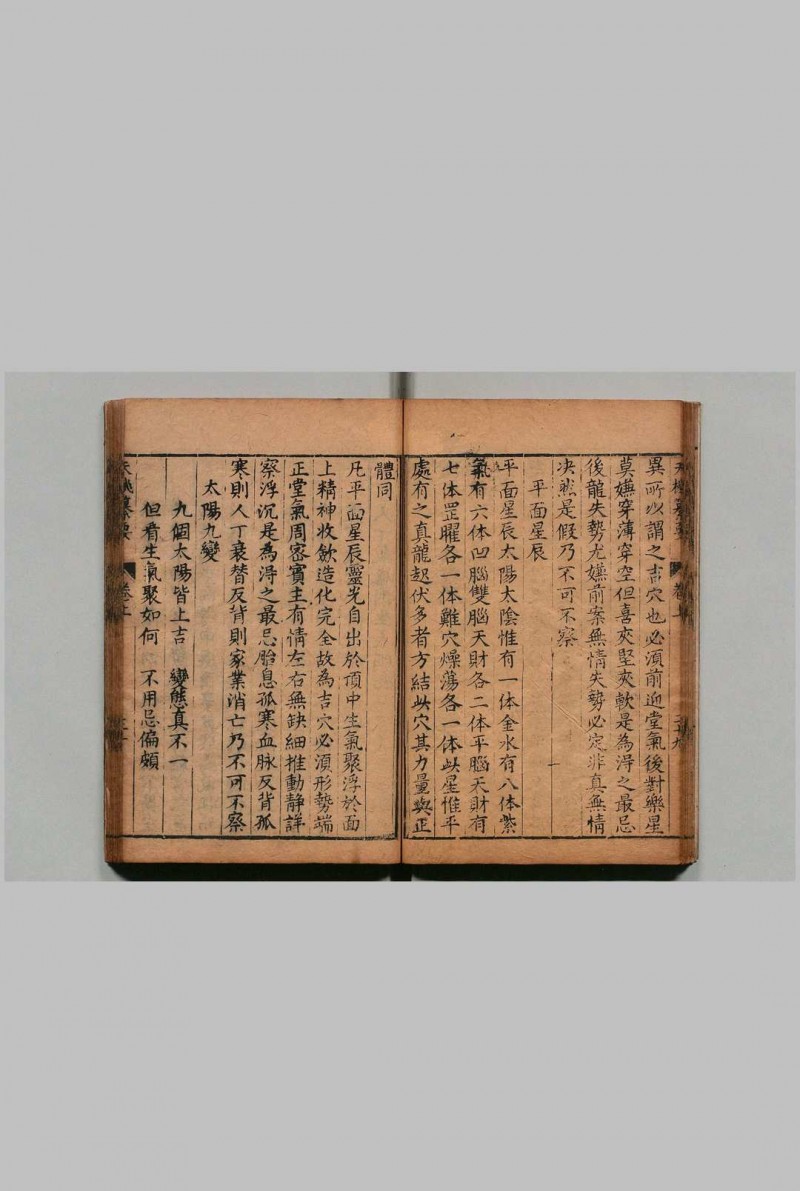 異所以謂之吉穴也必須前迎堂氣後對樂星
莫嫌穿薄穿空但喜夾堅夾軟是為淂之最忌
後龍失勢尤嫌前案無情失勢必定非真無情
决然是假乃不可不察
平面星辰
平面星辰太陽太陰惟有一体金水有八体紫
氣有六体凹腦雙腦天財各二体平腦天財有
七体罡曜各一体雞穴燥蕩各一体此星惟平
處有之真龍起伏多者方結此穴其力量與正
體同
凡平面星辰靈光自出於頂中生氣聚浮於面
上精神收歛造化完全故為吉穴必須形勢端
正堂氣周密賓主有情左右無缺細推動靜詳
察浮沉是為淂之最忌胎息孤寒血脉反背孤
寒則人丁衰替反背則家業消亡乃不可不察
太陽九變
九個太陽皆上吉 變態真不一
但看生氣聚如何 不用忌偏頗
卷上